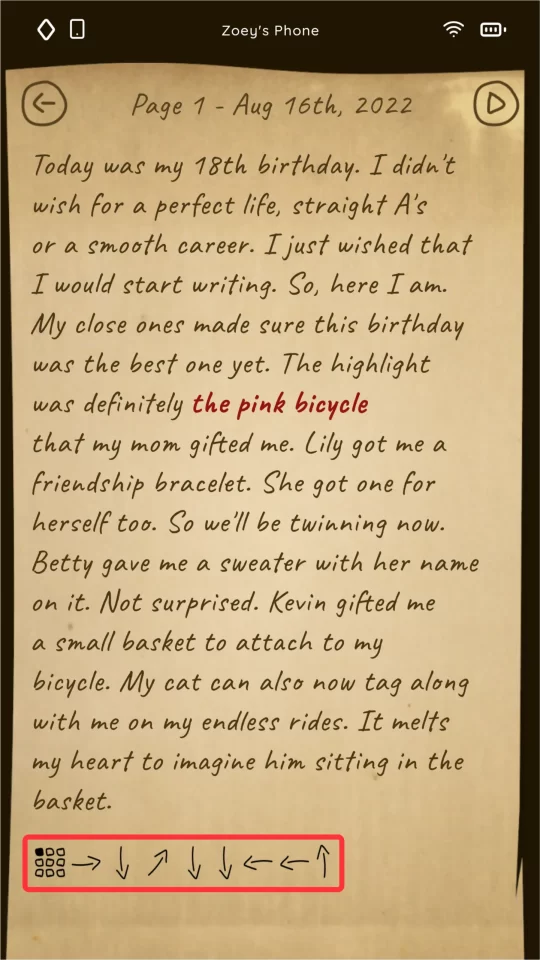 Zoey's Phone
Page 1 - Aug 16th, 2022
Today was my 18th birthday. I didn't
wish for a perfect life, straight A's
or a smooth career. I just wished that
I would start writing. So, here I am.
My close ones made sure this birthday
was the best one yet. The highlight
was definitely the pink bicycle
that my mom gifted me. Lily got me a
friendship bracelet. She got one for
herself too. So we'll be twinning now.
Betty gave me a sweater with her name
on it. Not surprised. Kevin gifted me
a small basket to attach to my
bicycle. My cat can also now tag along
with me on my endless rides. It melts
my heart to imagine him sitting in the
basket.
→ ↓ ↗ ↓ ↓ ← ← ↑